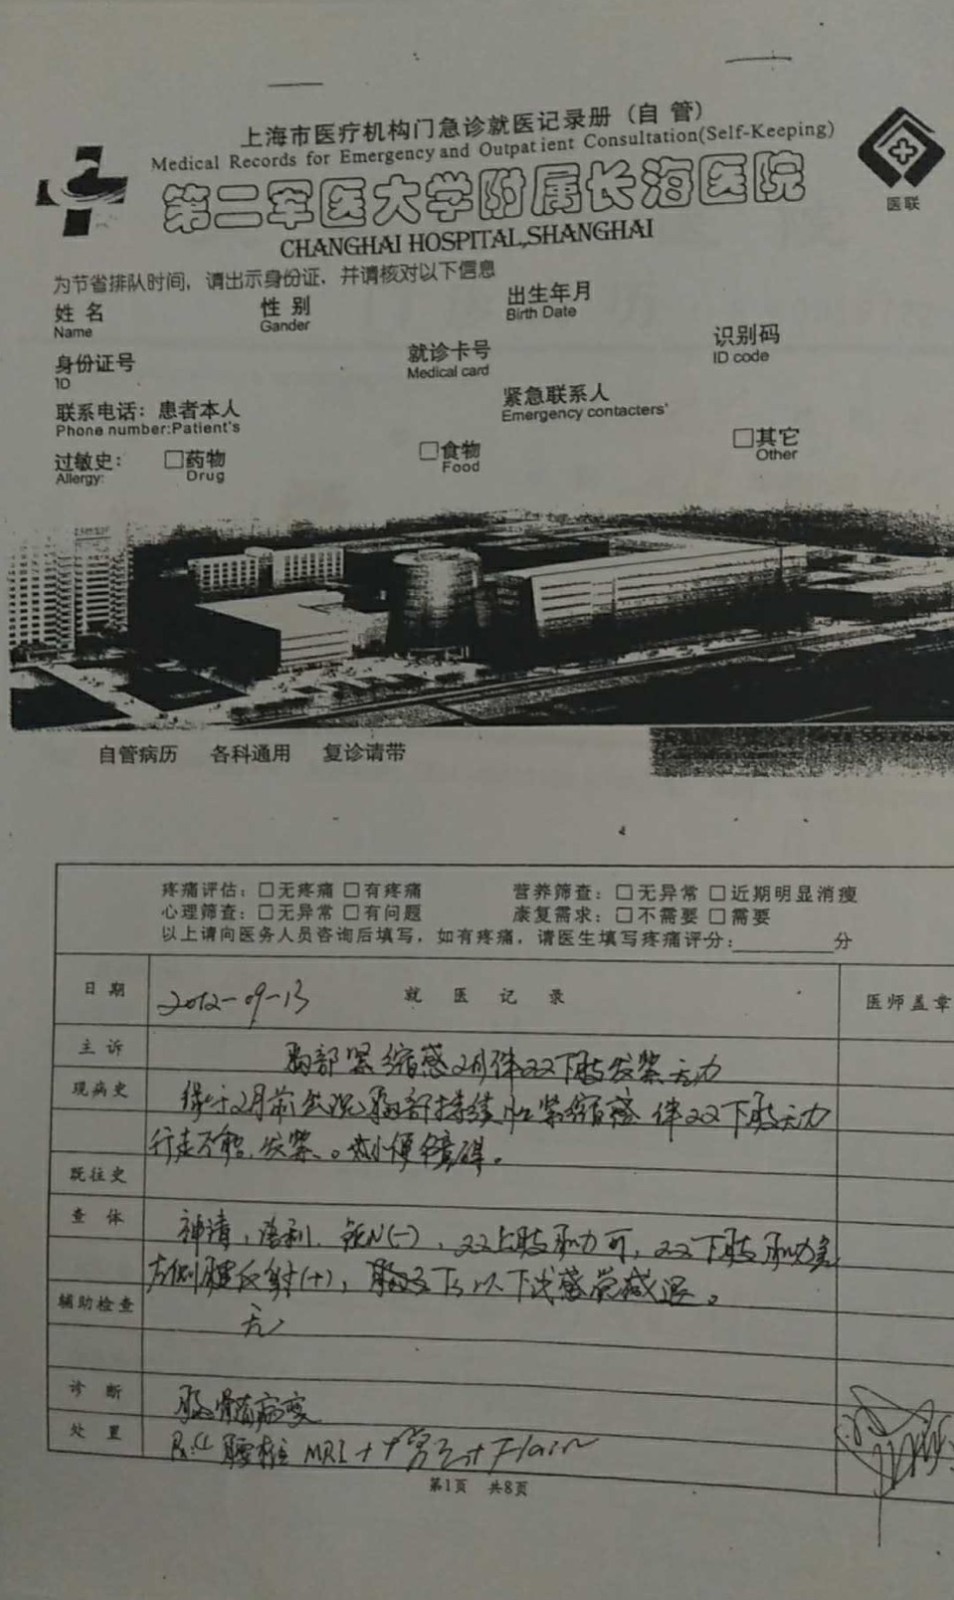 上海市医疗机构门急诊就医记录册（自管）
Medical Records for Emergency and Outpatient Consultation(Self-Keeping)
第二军医大学附属长海医院
医联
CHANGHAI HOSPITAL,SHANGHAI
为节省排队时间，请出示身份证，并请核对以下信息
姓名 性别 出生年月
Name Gander Birth Date
身份证号 就诊卡号 识别码
ID Medical card ID code
联系电话：患者本人 紧急联系人
Phone number:Patient's Emergency contacters'
过敏史： □药物 □食物 □其它
Allergy: Drug Food Other
自管病历 各科通用 复诊请带
疼痛评估：□无疼痛 □有疼痛 营养筛查：□无异常 □近期明显消瘦
心理筛查：□无异常 □有问题 康复需求：□不需要 □需要
以上请向医务人员咨询后填写，如有疼痛，请医生填写疼痛评分：________分
日期 2012-09-13 就医记录 医师盖章
主诉 胸部紧缩感2月伴双下肢发紧无力
现病史 2月前出现胸部持续性紧缩感 伴双下肢无力
行走不能，发紧。便障碍。
既往史
查体 神清，语利，(-)，双上肢肌力可，双下肢肌力差
左侧腱反射(+)，胸以下感觉减退。
辅助检查 无
诊断 胸髓病变
处置 腰椎MRI + Flair
第1页 共8页